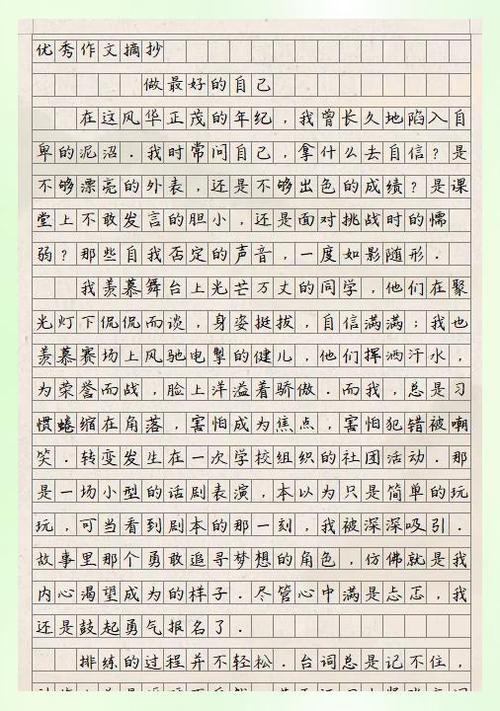 优秀作文摘抄
做最好的自己
在这风华正茂的年纪，我曾长久地陷入自
卑的泥沼．我时常问自己，拿什么去自信？是
不够漂亮的外表，还是不够出色的成绩？是课
堂上不敢发言的胆小，还是面对挑战时的懦
弱？那些自我否定的声音，一度如影随形．
我羡慕舞台上光芒万丈的同学，他们在聚
光灯下侃侃而谈，身姿挺拔，自信满满；我也
羡慕赛场上风驰电掣的健儿，他们挥洒汗水，
为荣誉而战，脸上洋溢着骄傲．而我，总是习
惯蜷缩在角落，害怕成为焦点，害怕犯错被嘲
笑．转变发生在一次学校组织的社团活动．那
是一场小型的话剧表演，本以为只是简单的玩
玩，可当看到剧本的那一刻，我被深深吸引．
故事里那个勇敢追寻梦想的角色，仿佛就是我
内心渴望成为的样子．尽管心中满是忐忑，我
还是鼓起勇气报名了．
排练的过程并不轻松．台词总是记不住，